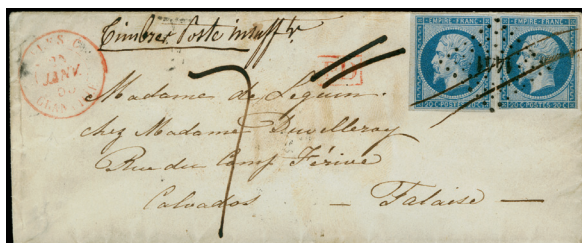 Timbres Poste insuff ts
EMPIRE FRANC
EMPIRE FRANC
20 C POSTES 20 C
20 C POSTES 20 C
JANV
PD
7
Madame de
chez Madame Duvelleroy
Rue du Camp Férine
Calvados — Falaise —